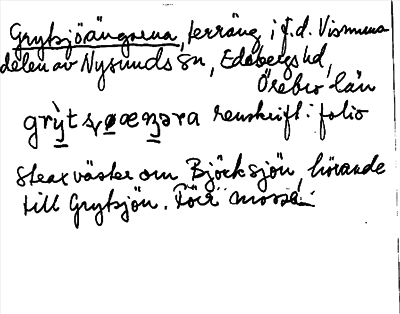 Grytsjöängarna, terräng i f.d. Vismena
delen av Nysunds sn, Edsbergs hd,
Örebro län
grỳtsɣøæŋəra renskrift i folio
strax väster om Björksjön, hörande
till Grytsjön. Förr mosse.